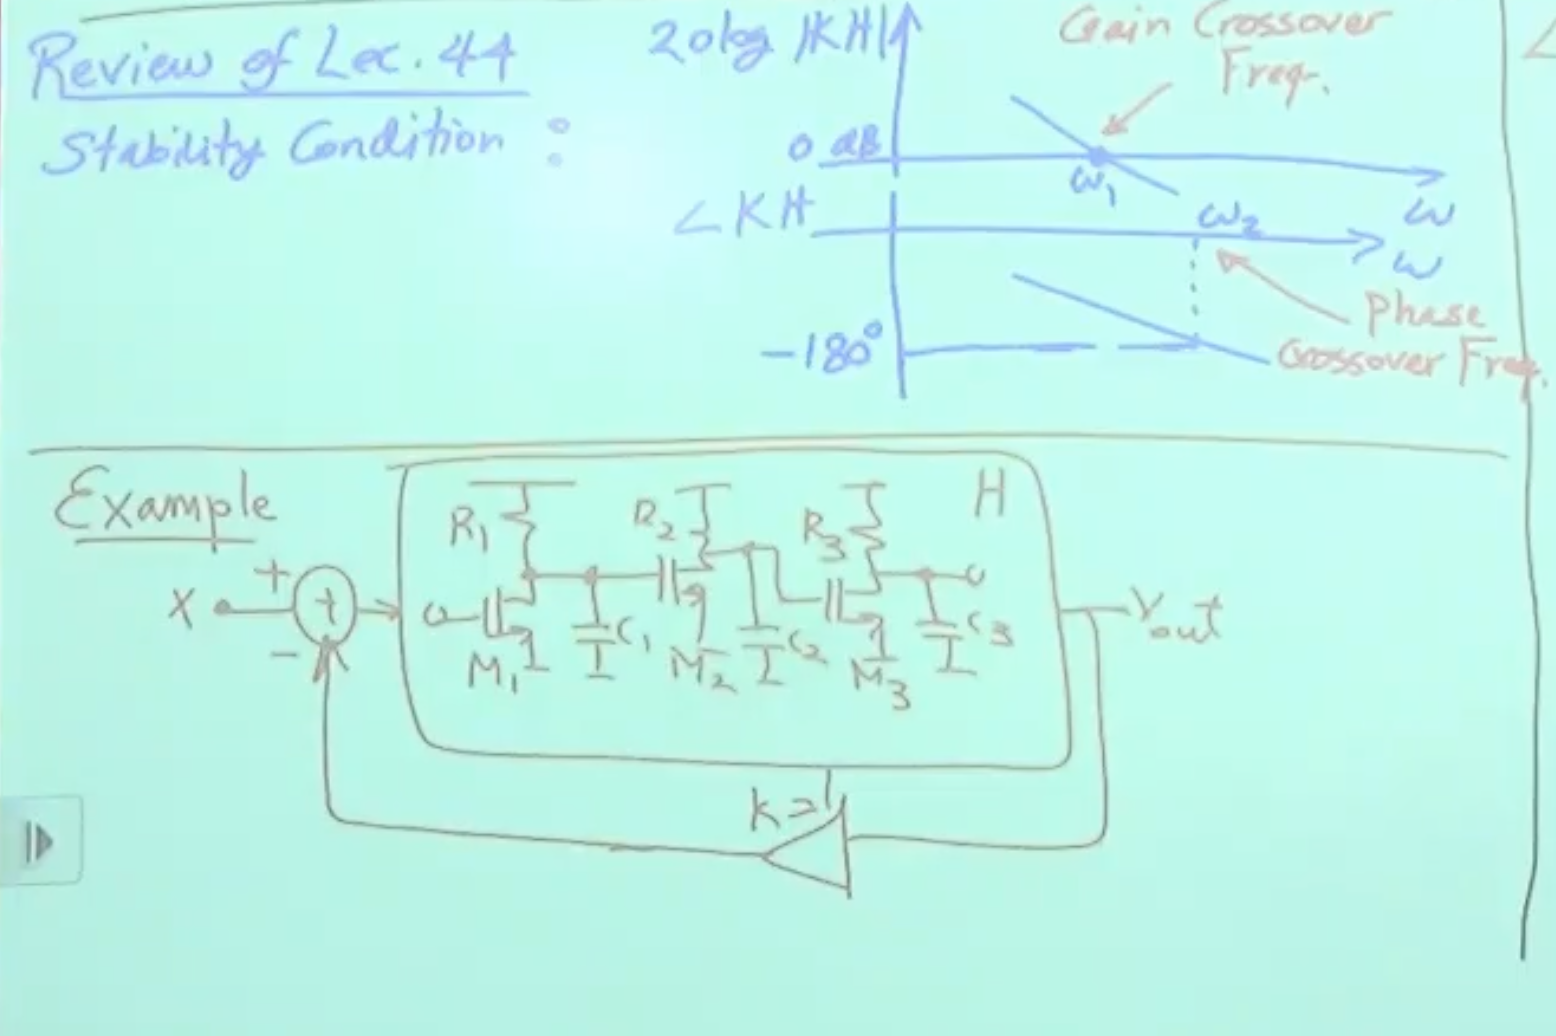 Review of Lec. 44
Stability Condition :
20log |KH|
Gain Crossover
Freq.
0 dB
ω₁
ω
∠KH
ω₂
ω
Phase
Crossover Freq.
-180°
Example
H
R₁
R₂
R₃
X
+
+
-
C₁
C₂
C₃
M₁
M₂
M₃
Vout
K=1